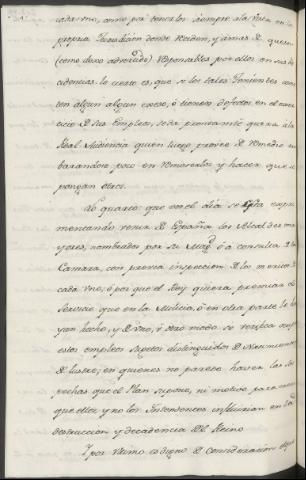 cada uno, como por tenerlos siempre a la vista en la
propria Jurisdiccion donde residen, y a mas de que son
(como dexo advertido) responsables por ellos en sus re-
cidencias: lo cierto es, que si los tales Tenientes come-
ten algun algun exceso, ó tienen defectos en el exer-
cicio de sus Empleos, se da prontamente quexa á la
Real Audiencia quien luego provee de remedio em-
barandose poco en removerlos, y hacer que se
pongan otros.
Lo quarto: que en el dia se está expe-
rimentando venir de España los Alcaldes ma-
yores, nombrados por su Mag. ó á consulta de la
Camara, con previa inspeccion de los meritos de
cada uno; ó por que el Rey quiera premiar los
Servicios que en la Milicia, ó en otra parte le ha-
yan hecho, y de uno, ú otro modo se verifica en
estos empleos sugetos distinguidos de Nacimiento
de lustre; en quienes no parece haver las sos-
pechas que el Plan supone, ni motivo para
que ellos y no los Intendentes influirian en la
destruccion y decadencia del Reino
Y por ultimo es digno de consideracion